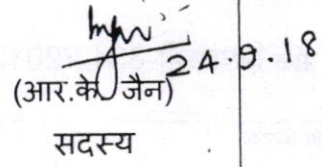 24.9.18
(आर.के जैन)
सदस्य